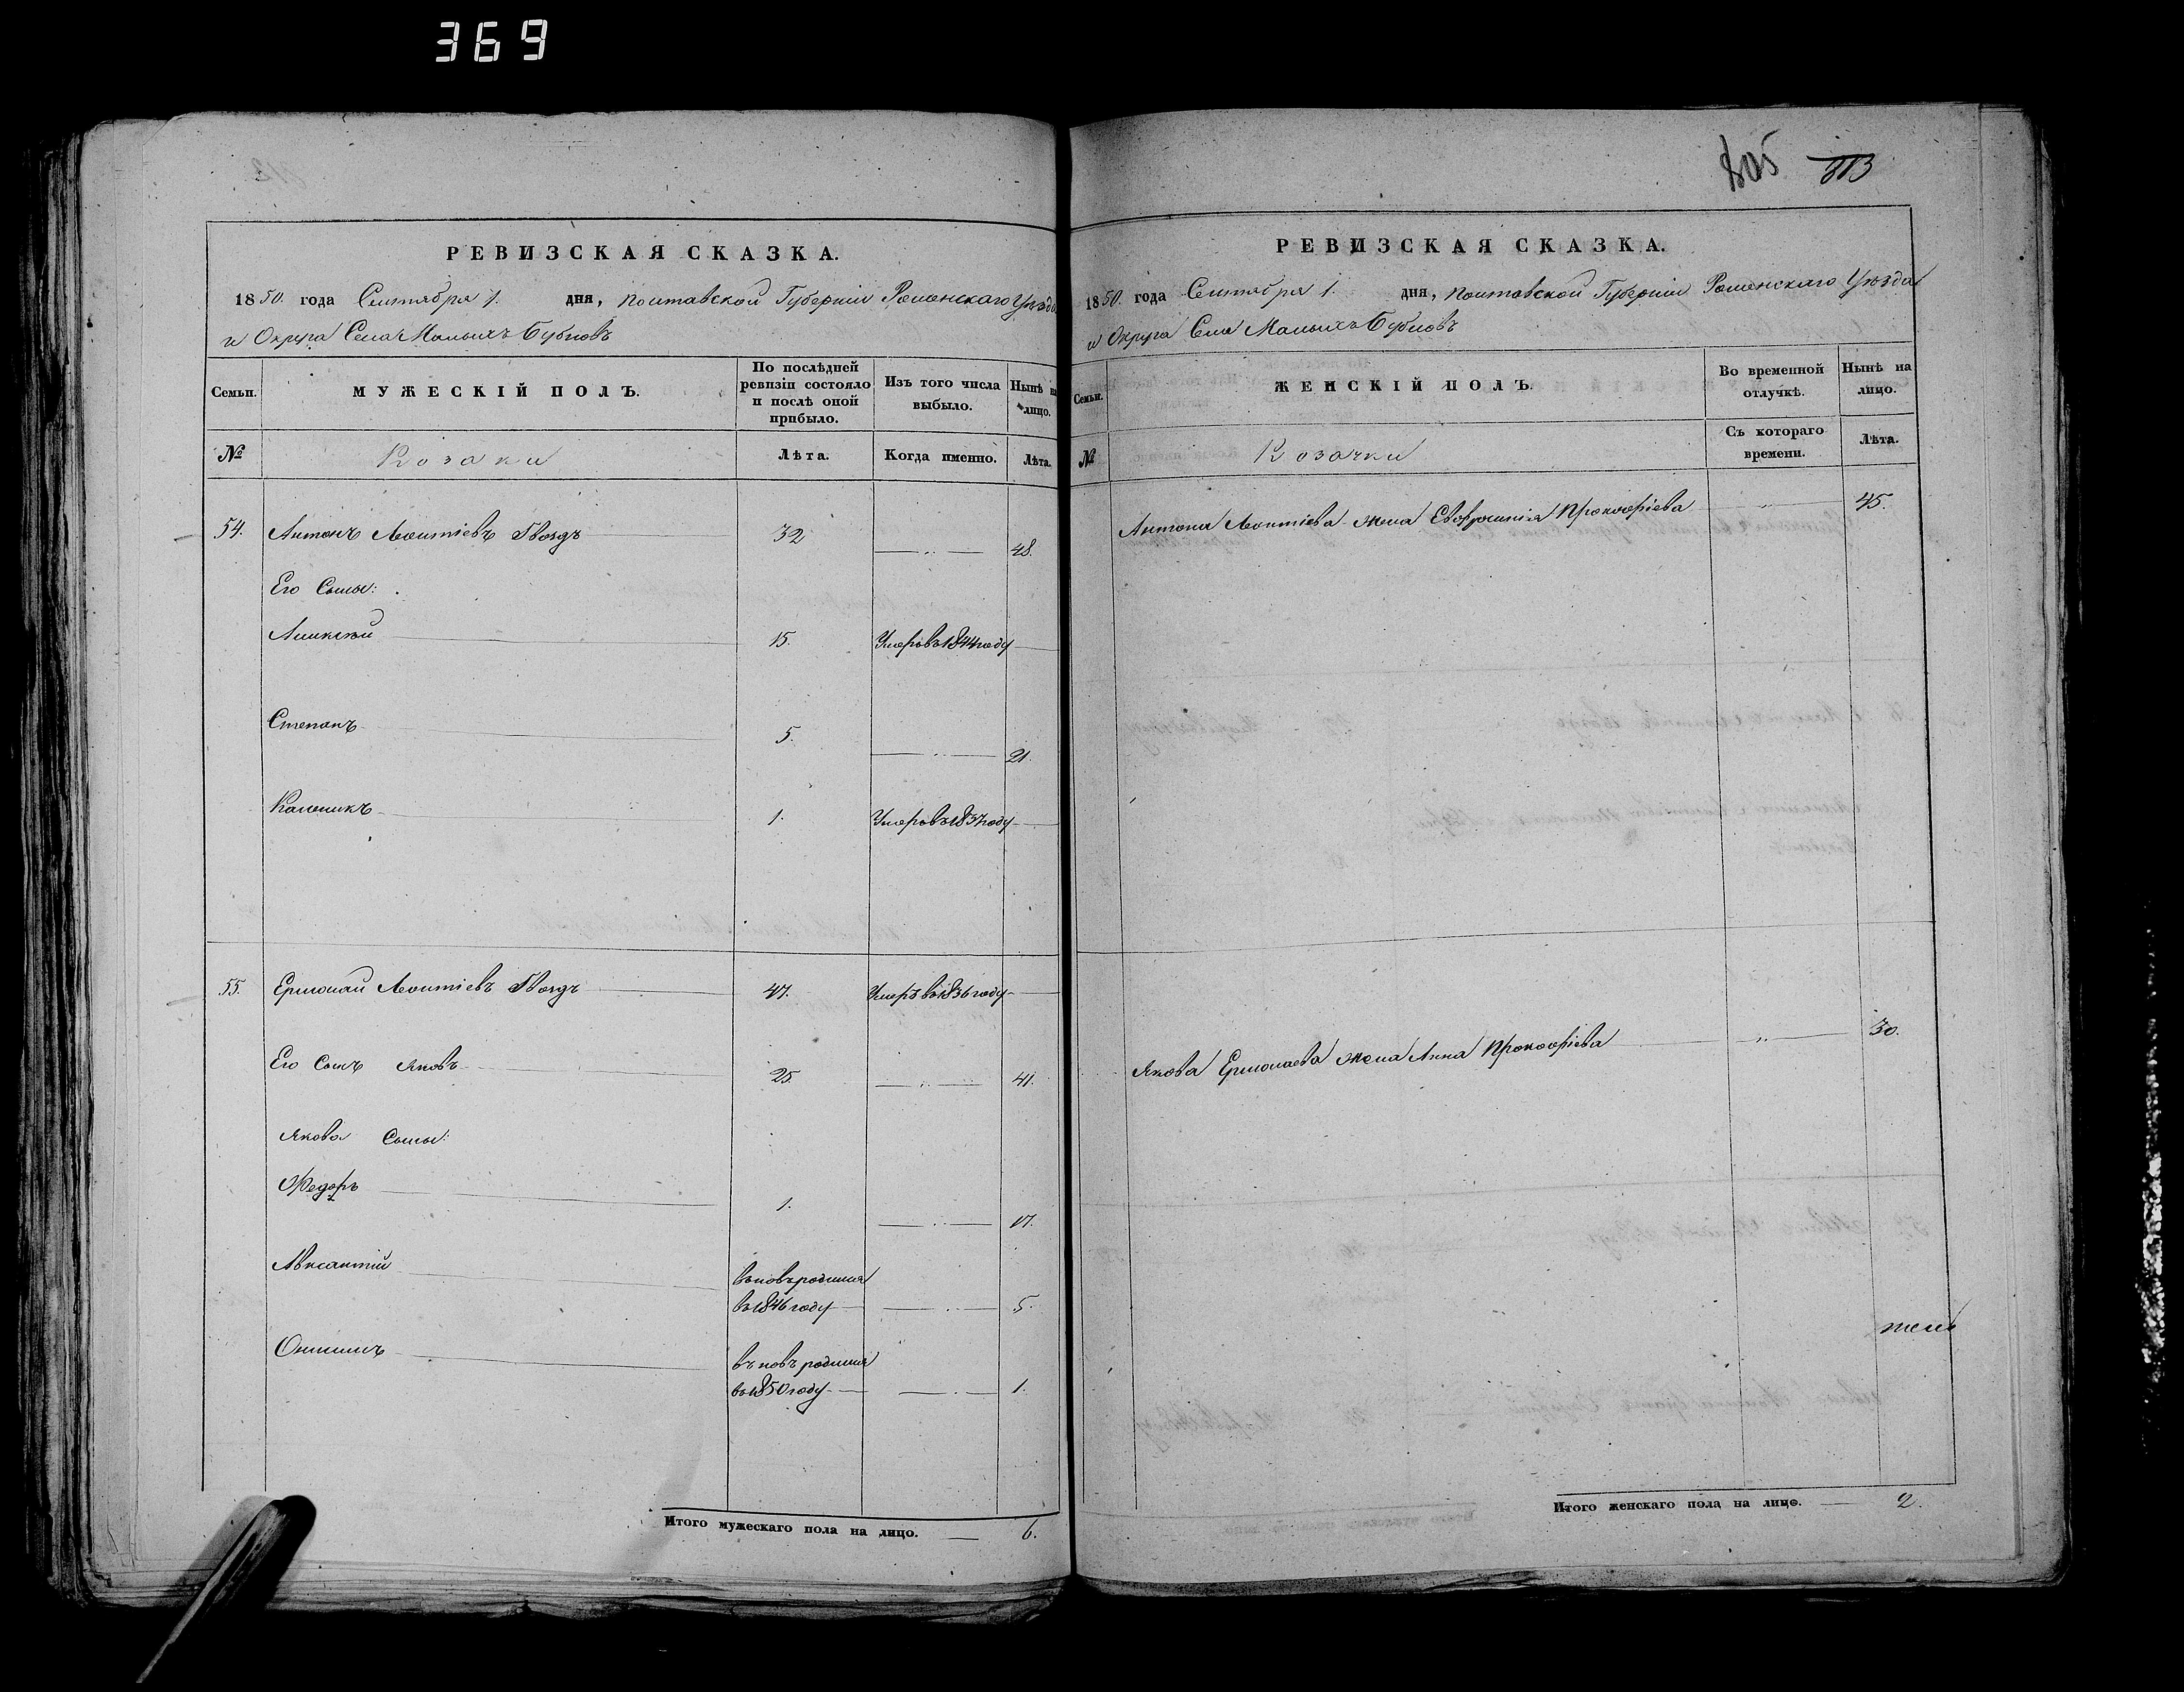 369
805 313
РЕВИЗСКАЯ СКАЗКА.
1850. года Сентября 1. дня, Полтавской Губерніи Роменскаго Уѣзда
и Округа Села Малыхъ Бубновъ
Семьи. МУЖЕСКІЙ ПОЛЪ. По послѣдней ревизіи состояло и послѣ оной прибыло. Изъ того числа выбыло. Нынѣ на лицо.
№ Козаки Лѣта. Когда именно. Лѣта.
54. Антонъ Леонтіевъ Гвоздъ 32 48.
Его Сыны:
Алексѣй 15. Умеръ въ 1844 году
Степанъ 5. 21.
Каленикъ 1. Умеръ въ 1837 году
55. Ермолай Леонтіевъ Гвоздъ 47. Умеръ въ 1836 году
Его Сынъ Яковъ 25. 41.
Якова Сыны:
Федоръ 1. 17.
Авксентій вновь родился
въ 1846 году 5.
Онисимъ вновь родился
въ 1850 году 1.
Итого мужескаго пола на лицо. 6.
РЕВИЗСКАЯ СКАЗКА.
1850. года Сентября 1. дня, Полтавской Губерніи Роменскаго Уѣзда
и Округа Села Малыхъ Бубновъ
Семьи. ЖЕНСКІЙ ПОЛЪ. Во временной отлучкѣ. Нынѣ на лицо.
№ Козачки Съ котораго времени. Лѣта.
Антона Леонтіева жена Евфросинія Прокофіева 45.
Якова Ермолаева жена Анна Прокофіева 30.
Итого женскаго пола на лицо. 2.